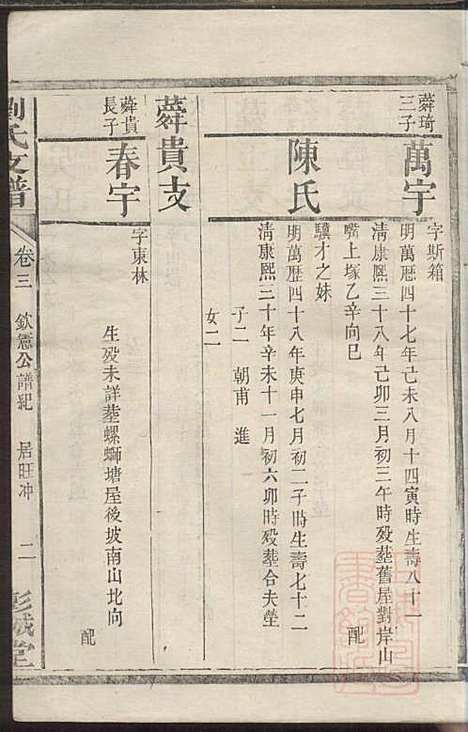 蕣琦
三子
萬宇
字斯箱
明萬歴四十七年己未八月十四寅時生壽八十一
清康熙三十八年己卯三月初三午時殁塟舊屋對岸山
嘴上塚乙辛向巳
配
陳氏
驥才之妹
明萬歴四十八年庚申七月初二子時生壽七十二
清康熙三十年辛未十一月初六卯時殁塟合夫塋
子二 朝甫 進
女二
蕣貴支
蕣貴
長子
春宇
字東林
生殁未詳塟螺螄塘屋後坡南山北向
配
劉氏支譜
卷三
欽憲公譜紀
居旺冲
二
彭城堂